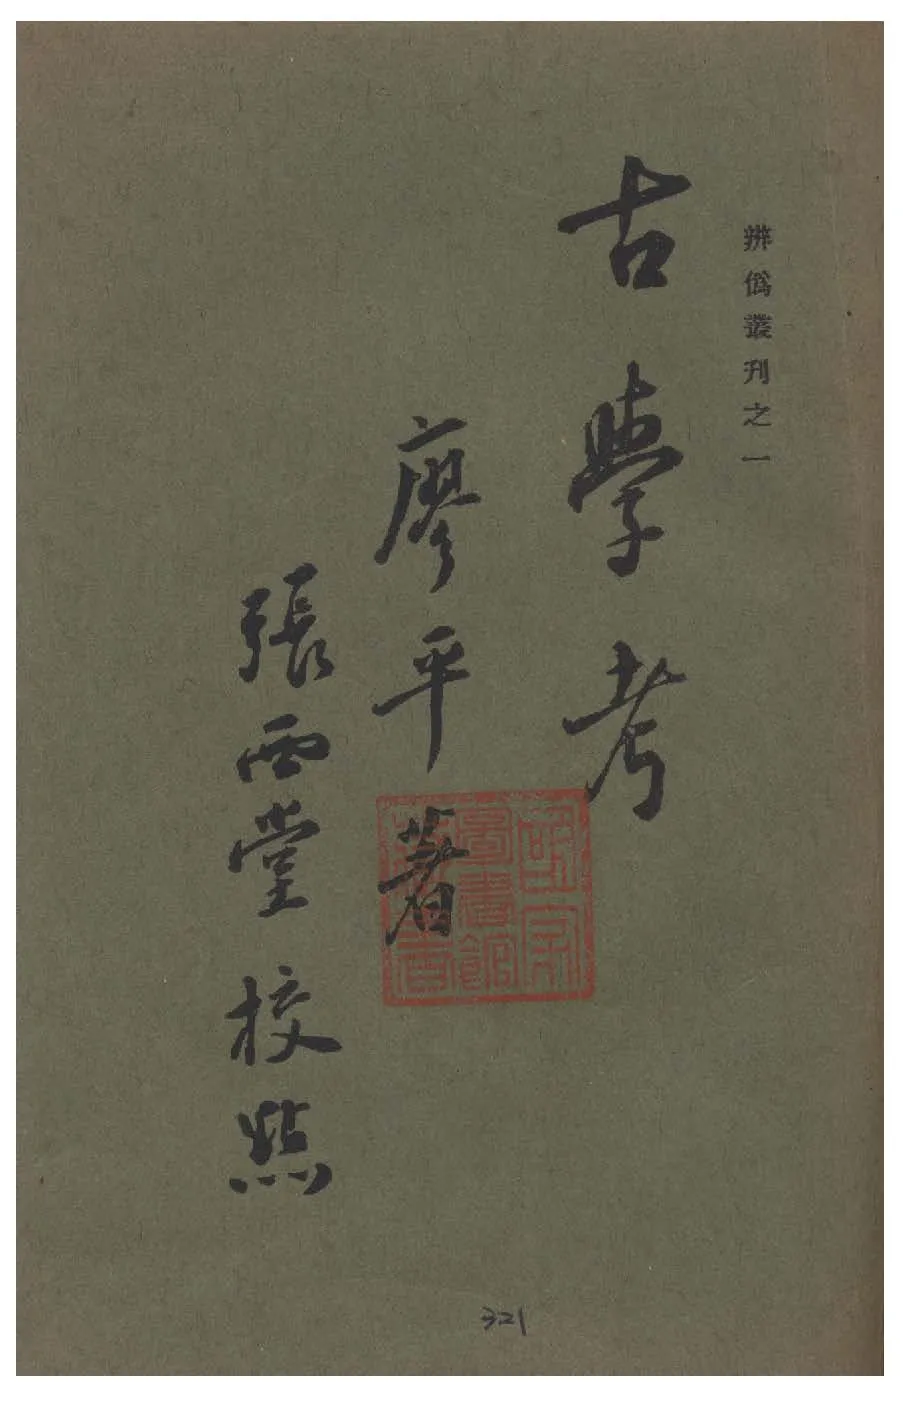 辨僞叢刊之一
古學考
廖平著
張西堂校點
國家圖書館藏書
321